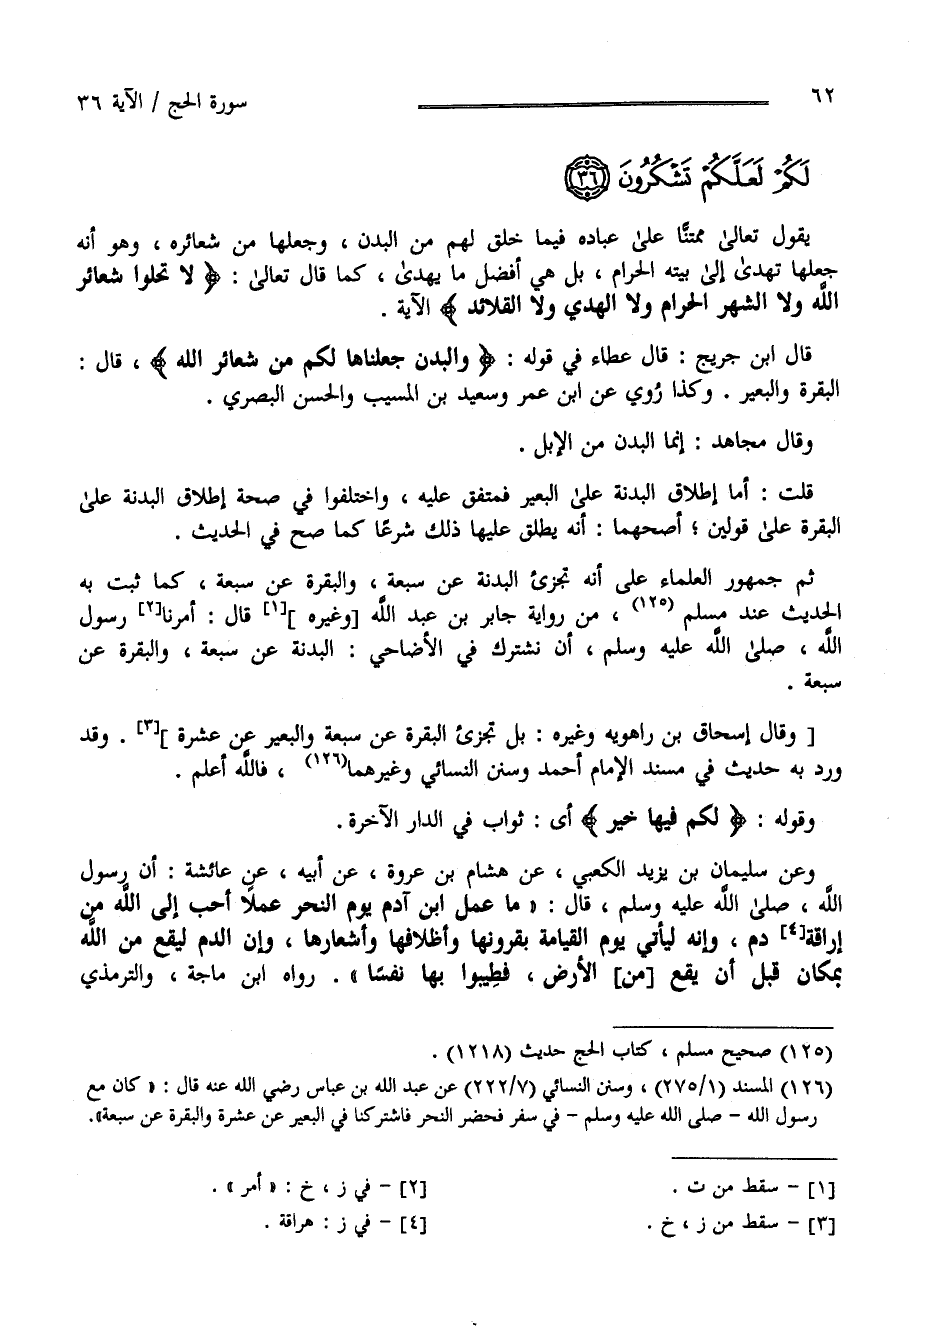 ٦٢
سورة الحج / الآية ٣٦
لَكُمْ لَعَلَّكُمْ تَشْكُرُونَ ٣٦
يقول تعالىٰ ممتنًّا علىٰ عباده فيما خلق لهم من البدن ، وجعلها من شعائره ، وهو أنه
جعلها تهدىٰ إلىٰ بيته الحرام ، بل هي أفضل ما يهدىٰ ، كما قال تعالىٰ : ﴿ لا تحلوا شعائر
اللَّه ولا الشهر الحرام ولا الهدي ولا القلائد ﴾ الآية .
قال ابن جريج : قال عطاء في قوله : ﴿ والبدن جعلناها لكم من شعائر الله ﴾ ، قال :
البقرة والبعير . وكذا رُوي عن ابن عمر وسعيد بن المسيب والحسن البصري .
وقال مجاهد : إنما البدن من الإبل .
قلت : أما إطلاق البدنة علىٰ البعير فمتفق عليه ، واختلفوا في صحة إطلاق البدنة علىٰ
البقرة علىٰ قولين ؛ أصحهما : أنه يطلق عليها ذلك شرعًا كما صح في الحديث .
ثم جمهور العلماء على أنه تجزئ البدنة عن سبعة ، والبقرة عن سبعة ، كما ثبت به
الحديث عند مسلم (١٢٥) ، من رواية جابر بن عبد اللَّه [وغيره ][١] قال : أمرنا[٢] رسول
اللَّه ، صلىٰ اللَّه عليه وسلم ، أن نشترك في الأضاحي : البدنة عن سبعة ، والبقرة عن
سبعة .
[ وقال إسحاق بن راهويه وغيره : بل تجزئ البقرة عن سبعة والبعير عن عشرة ][٣] . وقد
ورد به حديث في مسند الإمام أحمد وسنن النسائي وغيرهما(١٢٦) ، فاللَّه أعلم .
وقوله : ﴿ لكم فيها خير ﴾ أى : ثواب في الدار الآخرة .
وعن سليمان بن يزيد الكعبي ، عن هشام بن عروة ، عن أبيه ، عن عائشة : أن رسول
اللَّه ، صلىٰ اللَّه عليه وسلم ، قال : « ما عمل ابن آدم يوم النحر عملًا أحب إلى اللَّه من
إراقة[٤] دم ، وإنه ليأتي يوم القيامة بقرونها وأظلافها وأشعارها ، وإن الدم ليقع من اللَّه
بمكان قبل أن يقع [من] الأرض ، فطِيبوا بها نفسًا » . رواه ابن ماجة ، والترمذي
(١٢٥) صحيح مسلم ، كتاب الحج حديث (١٢١٨) .
(١٢٦) المسند (٢٧٥/١) ، وسنن النسائي (٢٢٢/٧) عن عبد الله بن عباس رضي الله عنه قال : « كان مع
رسول الله – صلى الله عليه وسلم – في سفر فحضر النحر فاشتركنا في البعير عن عشرة والبقرة عن سبعة».
[١] – سقط من ت .
[٢] – في ز ، خ : « أمر » .
[٣] – سقط من ز ، خ .
[٤] – في ز : هراقة .